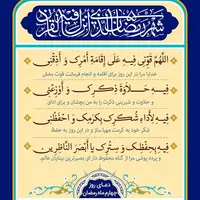 شهر رمضان الذی انزل فیه القرآن
اللهُمَّ قَوِّنِی فِیهِ عَلَى إِقَامَةِ أَمْرِکَ وَ أَذِقْنِی
خدایا مرا در این روز برای اقامه و انجام فرمانت قوت بخش
فِیهِ حَلاوَةَ ذِکْرِکَ وَ أَوْزِعْنِی
و حلاوت و شیرینی ذکرت را به من بچشان و برای ادای
فِیهِ لِأَدَاءِ شُکْرِکَ بِکَرَمِکَ وَ احْفَظْنِی
شکر خود به کرمت مهیا ساز و در این روز به حفظ
فِیهِ بِحِفْظِکَ وَ سِتْرِکَ یَا أَبْصَرَ النَّاظِرِینَ
و پرده پوشی مرا از گناه محفوظ دار ای بصیرترین بینایان عالم.
دعای روز
چهارم ماه رمضان